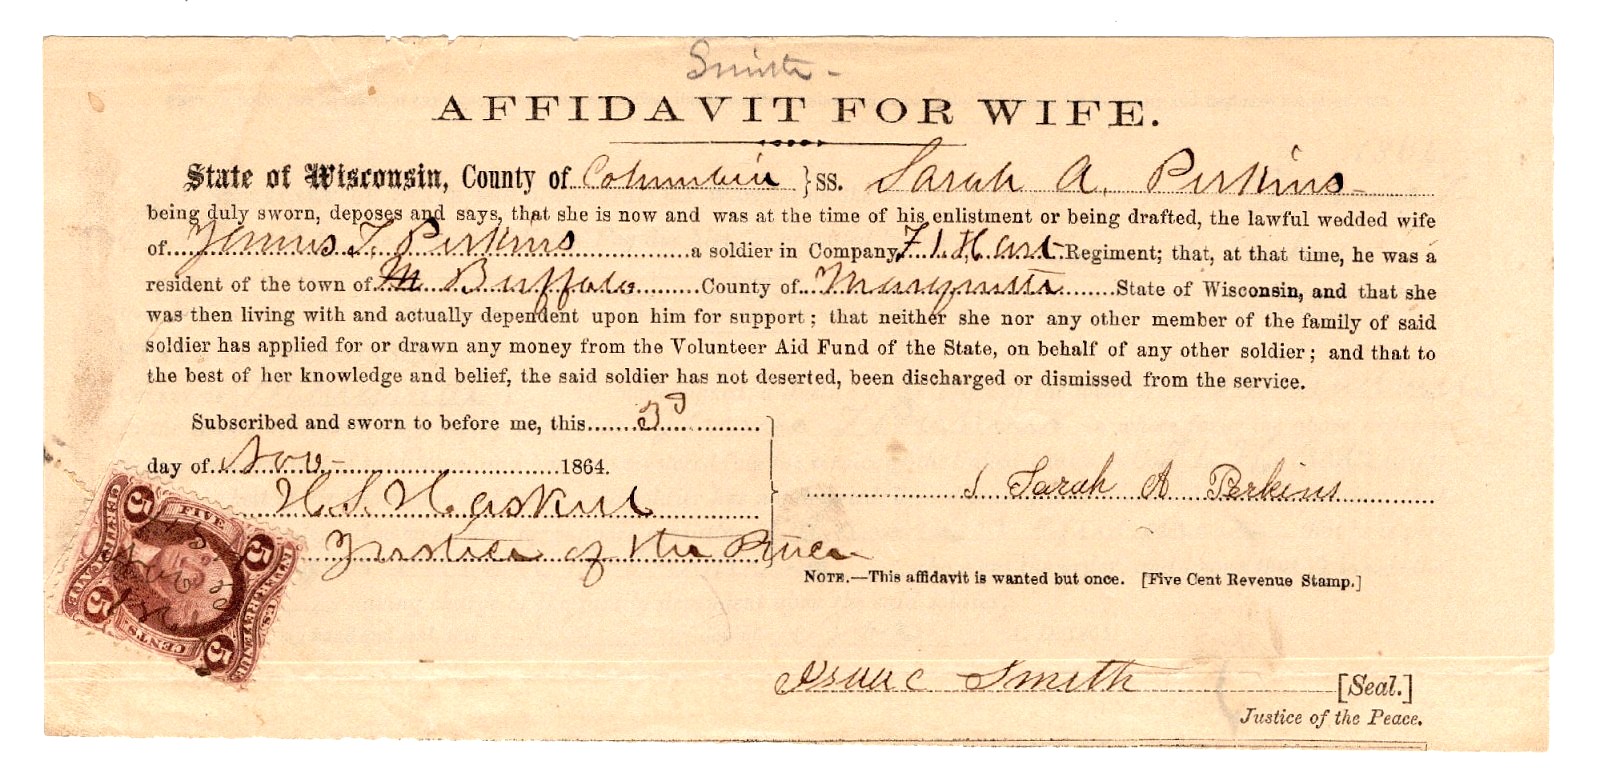 Smith -
AFFIDAVIT FOR WIFE.
State of Wisconsin, County of Columbia } ss. Sarah A. Perkins
being duly sworn, deposes and says, that she is now and was at the time of his enlistment or being drafted, the lawful wedded wife
of T. Perkins a soldier in Company F 1. H. Art Regiment; that, at that time, he was a
resident of the town of Buffalo County of Marquette State of Wisconsin, and that she
was then living with and actually dependent upon him for support; that neither she nor any other member of the family of said
soldier has applied for or drawn any money from the Volunteer Aid Fund of the State, on behalf of any other soldier; and that to
the best of her knowledge and belief, the said soldier has not deserted, been discharged or dismissed from the service.
Subscribed and sworn to before me, this 3d
day of Nov- 1864.
Sarah A Perkins
H. S. Haskell
Justice of the Peace
NOTE.—This affidavit is wanted but once. [Five Cent Revenue Stamp.]
5 FIVE 5
CERTIFICATE
INTER. REVENUE
U.S.
5 CENTS. 5
Isaac Smith [Seal.]
Justice of the Peace.